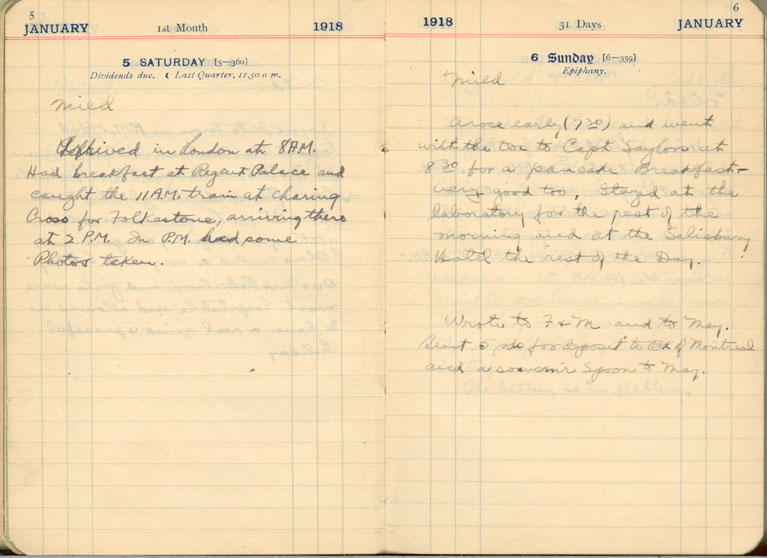 5
JANUARY 1st Month 1918
5 SATURDAY [5–360]
Dividends due. ☾ Last Quarter, 11.50 a m.
Mild
Arrived in London at 8 A.M.
Had breakfast at Regent Palace and
caught the 11 A.M. train at Charing
Cross for Folkestone, arriving there
at 2 P.M. In P.M. had some
Photos taken.
6
1918 31 Days JANUARY
6 Sunday [6–359]
Epiphany.
Mild
Arose early (7 30) and went
with the to Capt Saylors at
8 30 for a pancake Breakfast –
very good too, Stayed at the
laboratory for the rest of the
morning and at the Salisbury
Hotel the rest of the Day.
Wrote to F & M and to May.
Sent 5 for deposit to Bk of Montreal
and a souvenir Spoon to May.